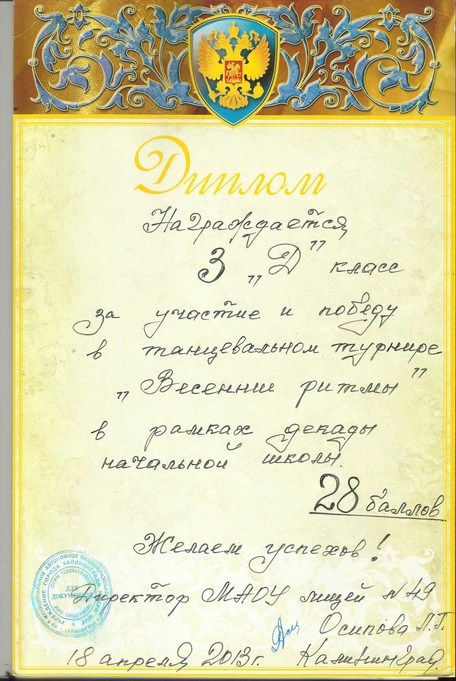 Диплом
Награждается
3 „Д" класс
за участие и победу
в танцевальном турнире
„Весенние ритмы"
в рамках декады
начальной школы.
28 баллов
Желаем успехов!
Директор МАОУ лицей №49
Осипова Л.П.
18 апреля 2013г. Калининград.
ДЛЯ
ДОКУМЕНТОВ